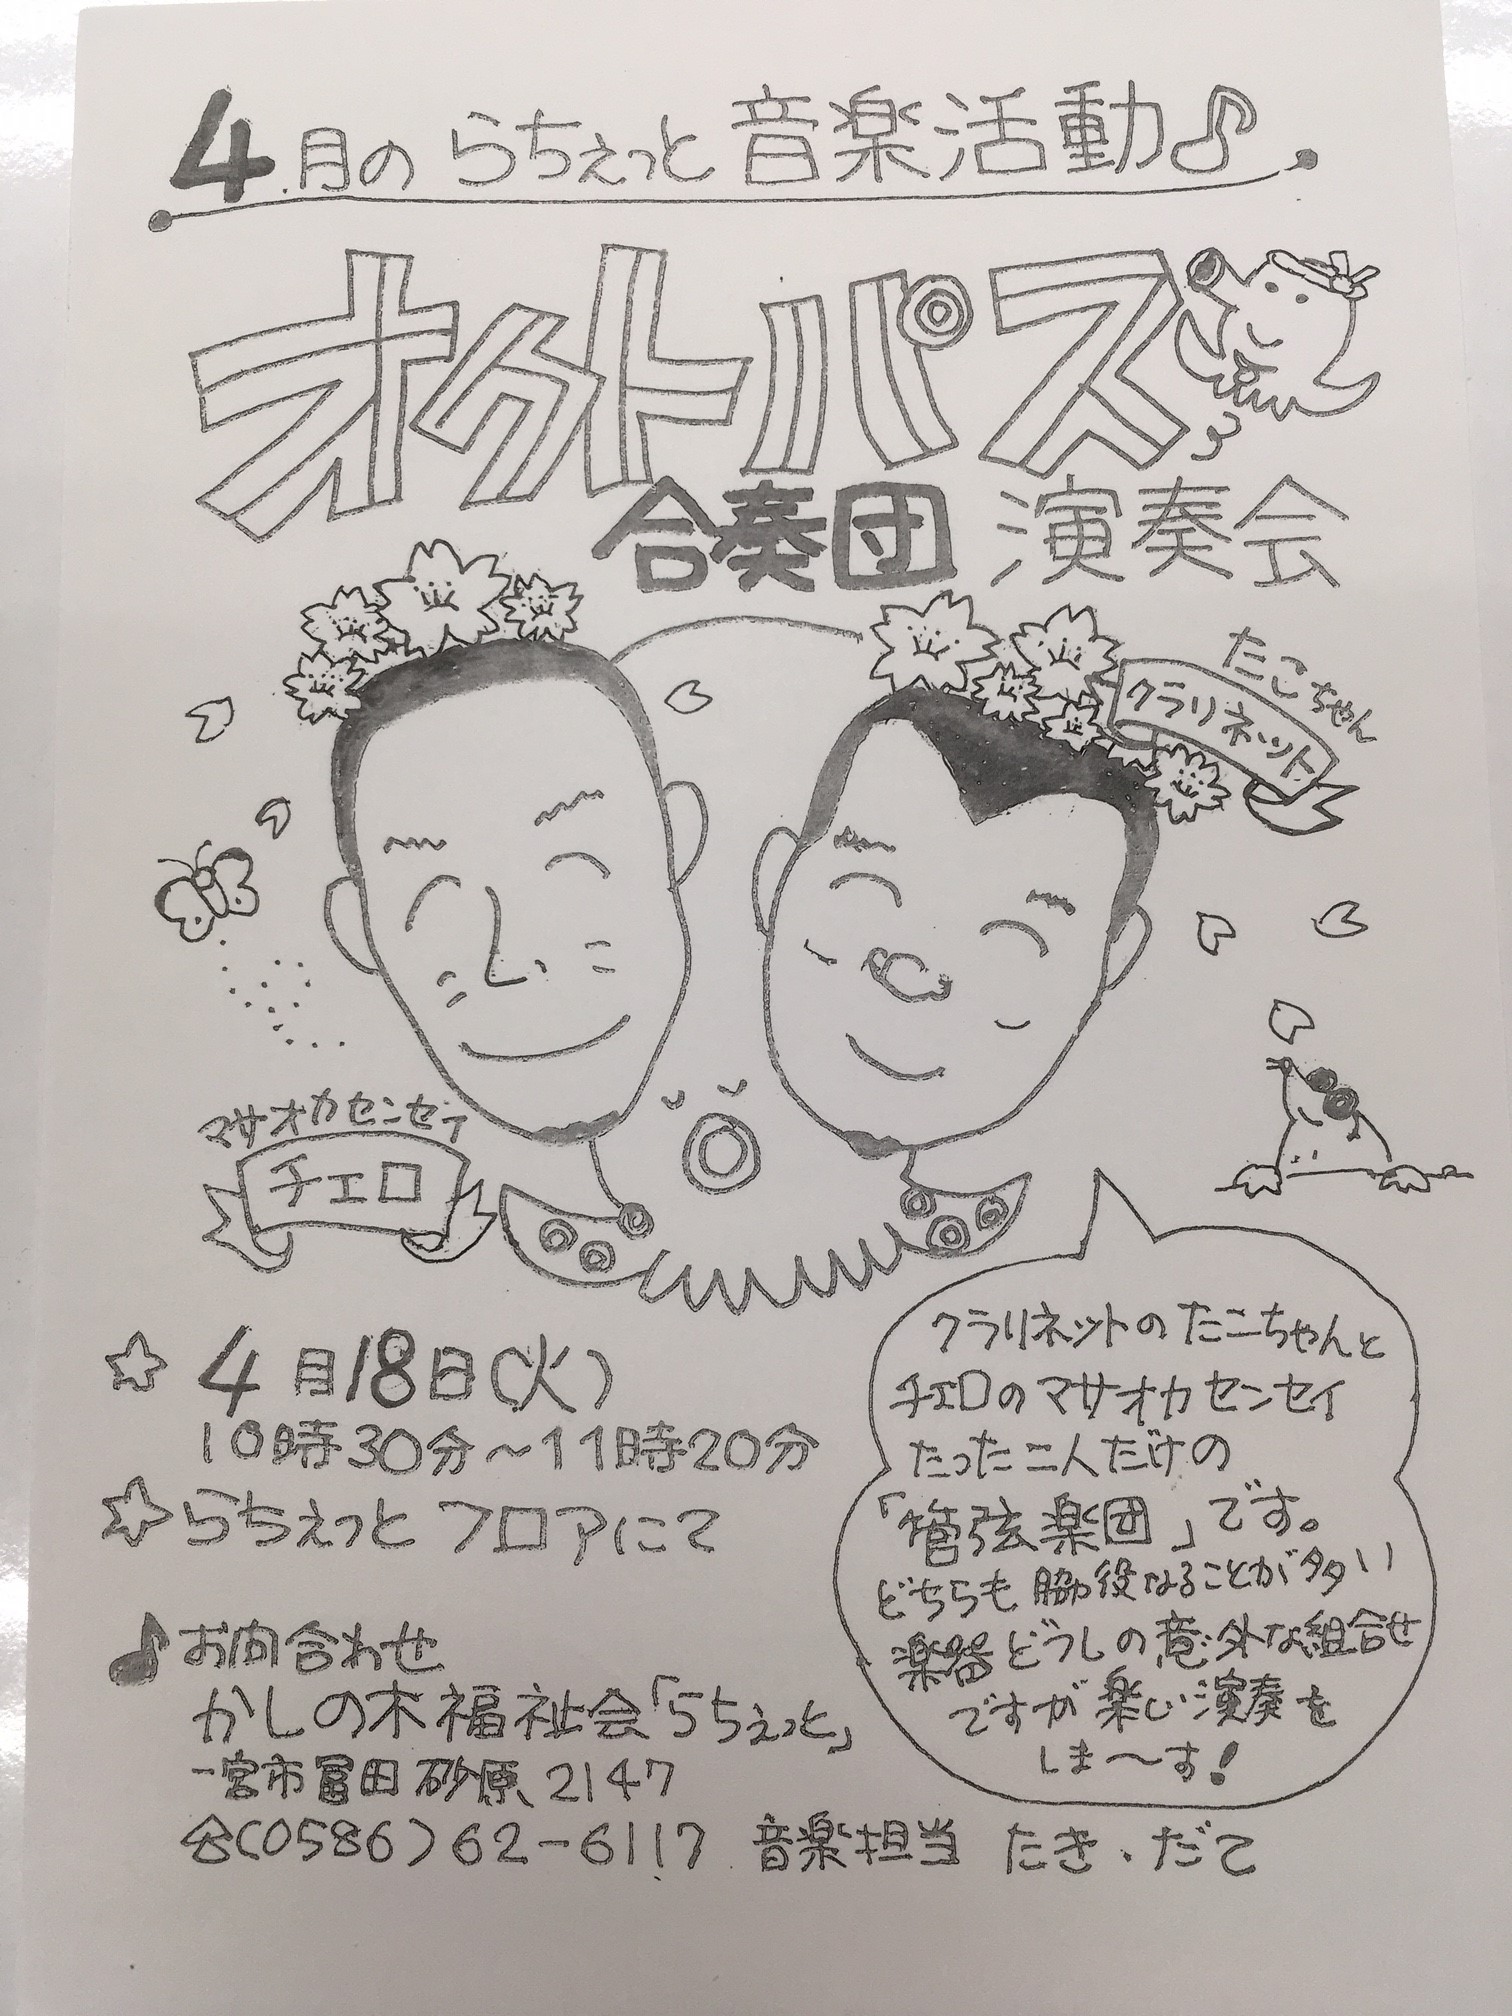 4月の らちぇっと 音楽活動♪
オクトパス
合奏団 演奏会
たこちゃん
クラリネット
マサオカセンセイ
チェロ
☆ 4月18日(火)
10時30分~11時20分
☆らちぇっと フロアにて
クラリネットのたこちゃんと
チェロのマサオカセンセイ
たった二人だけの
「管弦楽団」です。
どちらも脇役なることが多い
楽器どうしの意外な組合せ
ですが楽しい演奏を
しま〜す!
♪お問合わせ
かしの木福祉会「らちぇっと」
一宮市冨田砂原2147
☎(0586)62-6117 音楽担当 たき・だて